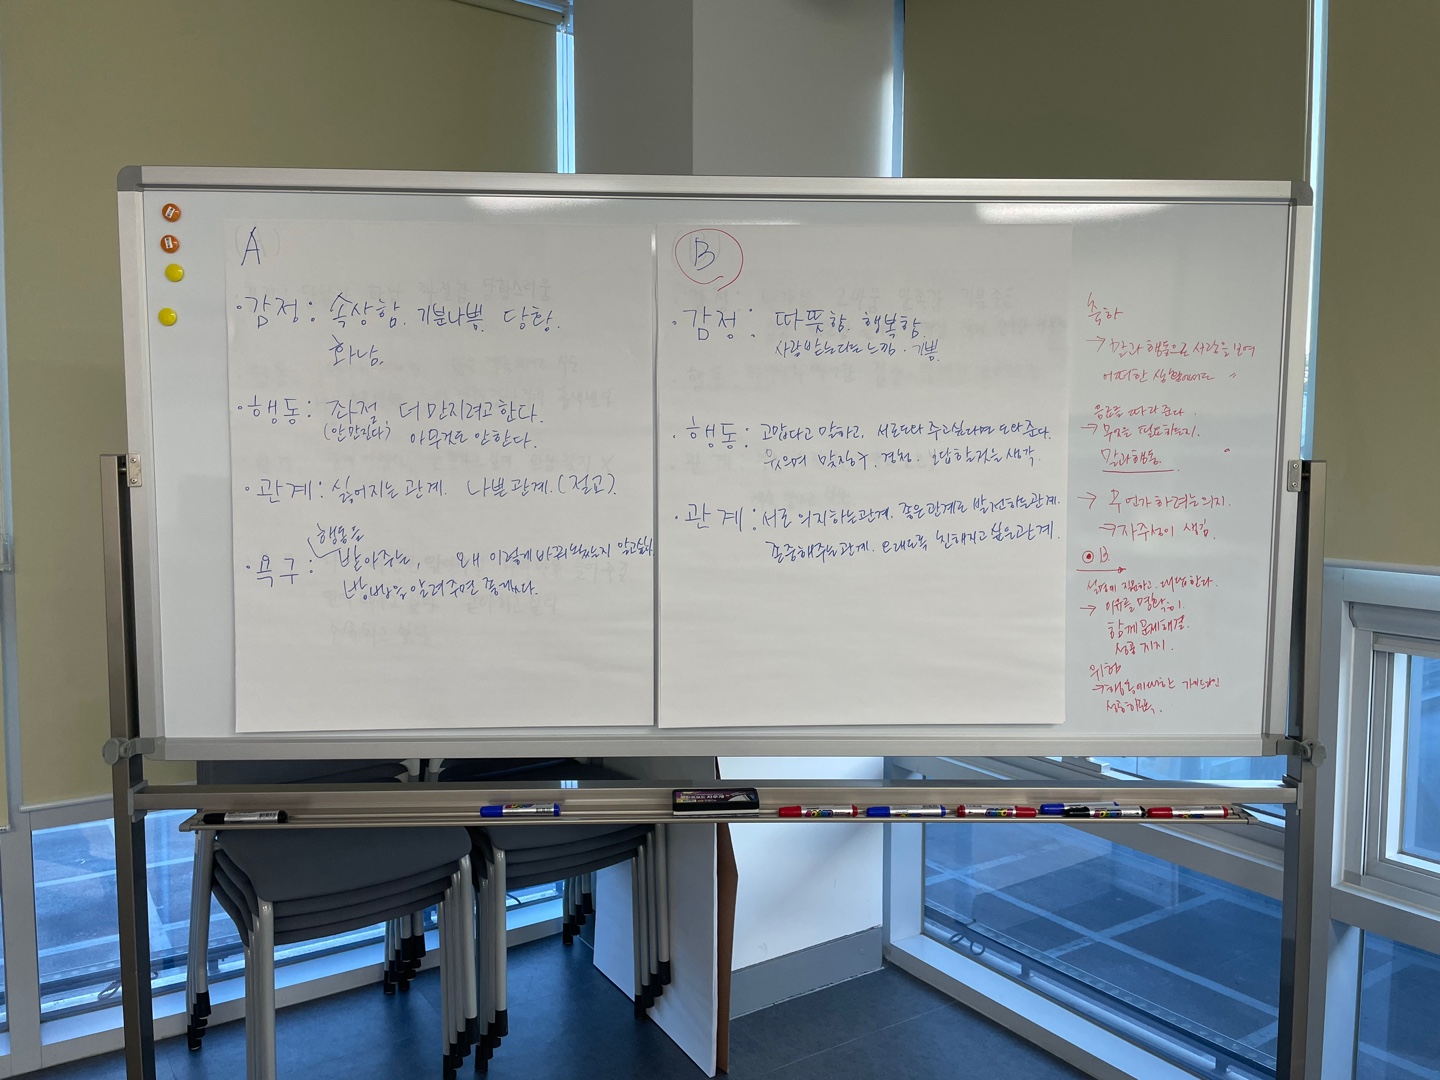 A
· 감정 : 속상함. 기분나쁨. 당황.
화남.
· 행동 : 좌절, 더 만지려고 한다.
(안만진다) 아무것도 안한다.
· 관계 : 싫어지는 관계. 나쁜관계. (절교).
행동을
· 욕구 : 받아주는, 왜 이렇게 바뀌었는지 알고싶다.
방법을 알려주면 좋겠다.
B
· 감정 : 따뜻함. 행복함.
사랑받는다는 느낌. 기쁨.
· 행동 : 고맙다고 말하고, 서로도와 주고싶다면 도와준다.
웃으며 맞장구. 경청. 보답할것을 생각.
· 관계 : 서로 의지하는관계. 좋은관계로 발전하는관계.
존중해주는 관계. 오래도록 친해지고 싶은관계.
→ 말과 행동으로 사랑을 보여
어떠한 상황에서도
음료를 따라준다.
→ 무엇을 필요하는지.
말과행동.
→ 무언가 하려는의지.
→ 자주성이 생김.
⊙ B
질문하고. 대답한다.
→ 이유를 명확히.
함께 문제해결.
성공 지지.
위험
가이드라인